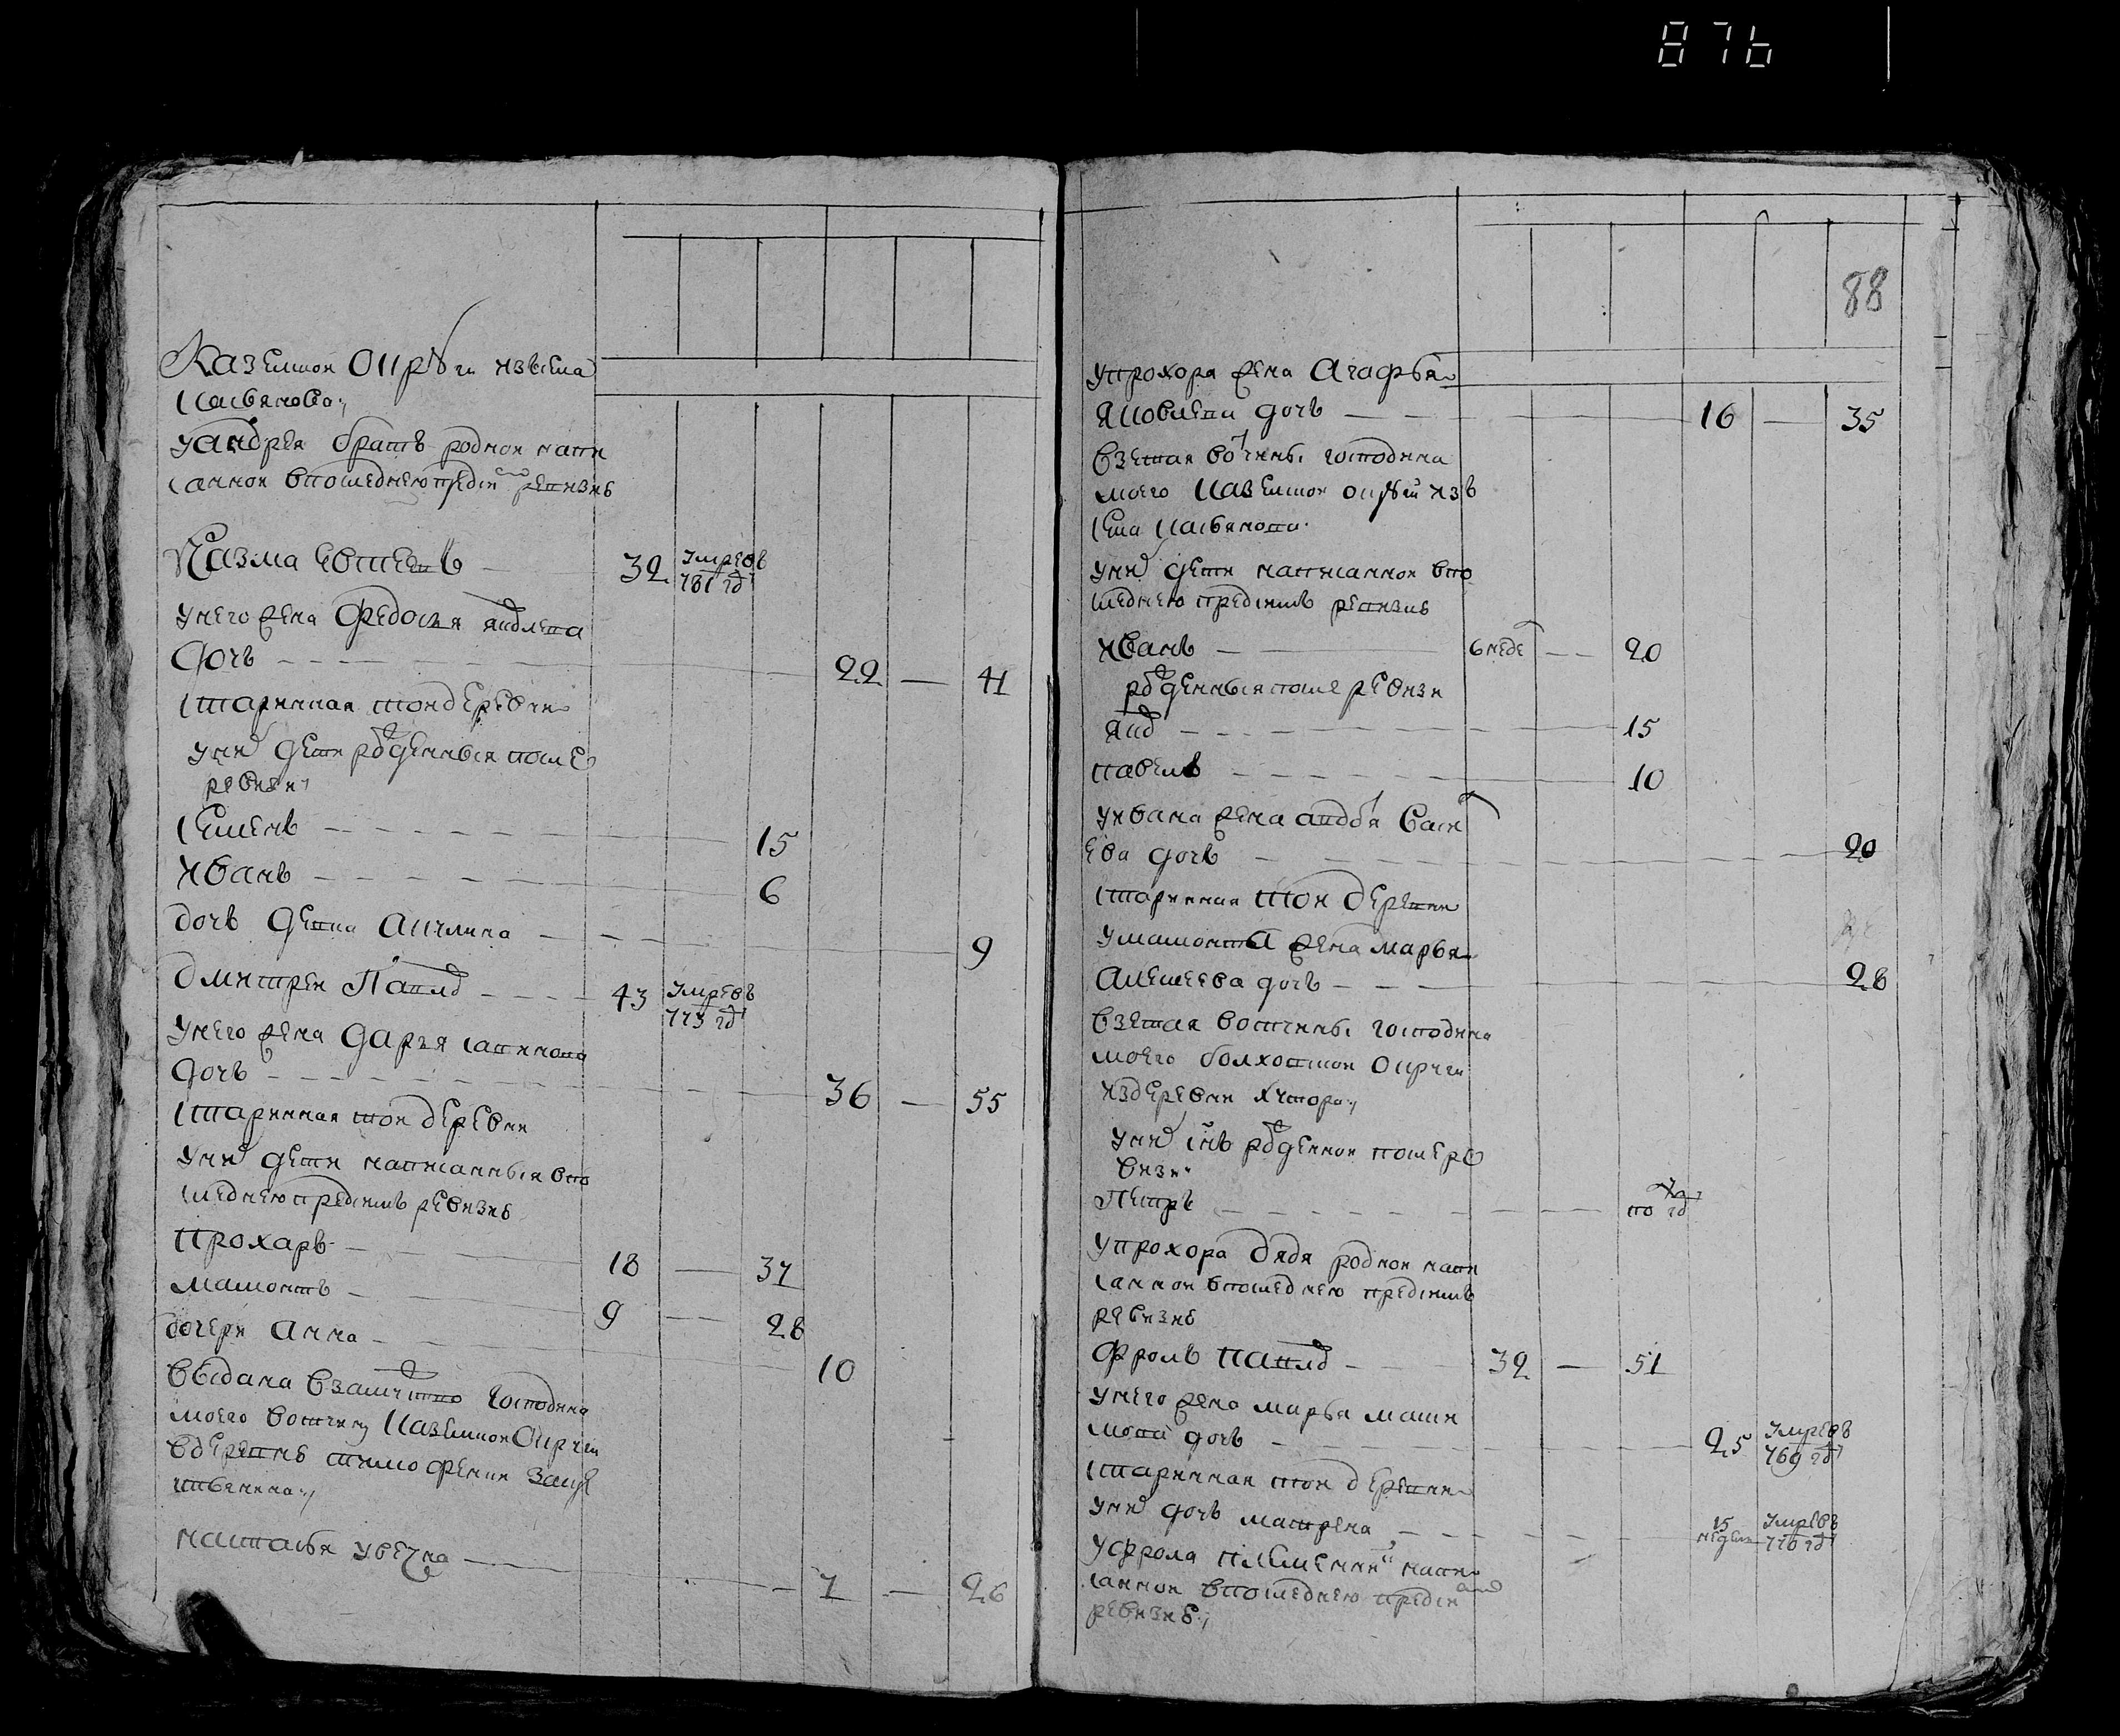 876
казелской округи изъ села
Касьянова;
у андрея братъ родной напи
санной впоследнею предъ сею ревизиѣ
Казма евтеевъ 32 умре въ 781 гд
унего жена федосья яковлева
дочь 22 41
старинная тои деревни
уних дети рожденныя после
ревизи
семенъ 15
иванъ 6
дочь девка акилина 9
дмитреи Павлов 43 умре въ 773 гд
унего жена дарья савинова
дочь 36 55
старинная тои деревни
уних дети написанныя впо
следнею предсимъ ревизиѣ
прохаръ 18 37
мамонтъ 9 28
дочери анна 10
выдана взамужство господина
моего вотчину казелской округи
вдеревнѣ
настасья увечна 7 26
88
упрохора жена агафья
яковлева дочь 16 35
взетая вотчины господина
моего казелской округи изъ
села касьянова
уних дети написанной впо
следнею предсимъ ревизиѣ
иванъ 6 неде 20
рожденныя после ревизи
яков 15
павелъ 10
уивана жена авдотья васи
ева дочь 20
старинная тои деревни
умамонта жена марья
алексеева дочь 28
взетая вотчины господина
моего болховской округи
издеревни хутора;
уних сынъ рожденной после ре
визи
Петръ по гд
упрохора дядя родной напи
санной впоследнею предсимъ
ревизиѣ
фролъ павлов 32 51
унего жена марья макси
мова дочь 25 умре въ 769 гд
старинная тои деревни
уних дочь матрена 15 недель умре въ 770 гд
уфрола племянник напи
санной впоследнею предсим
ревизиѣ;